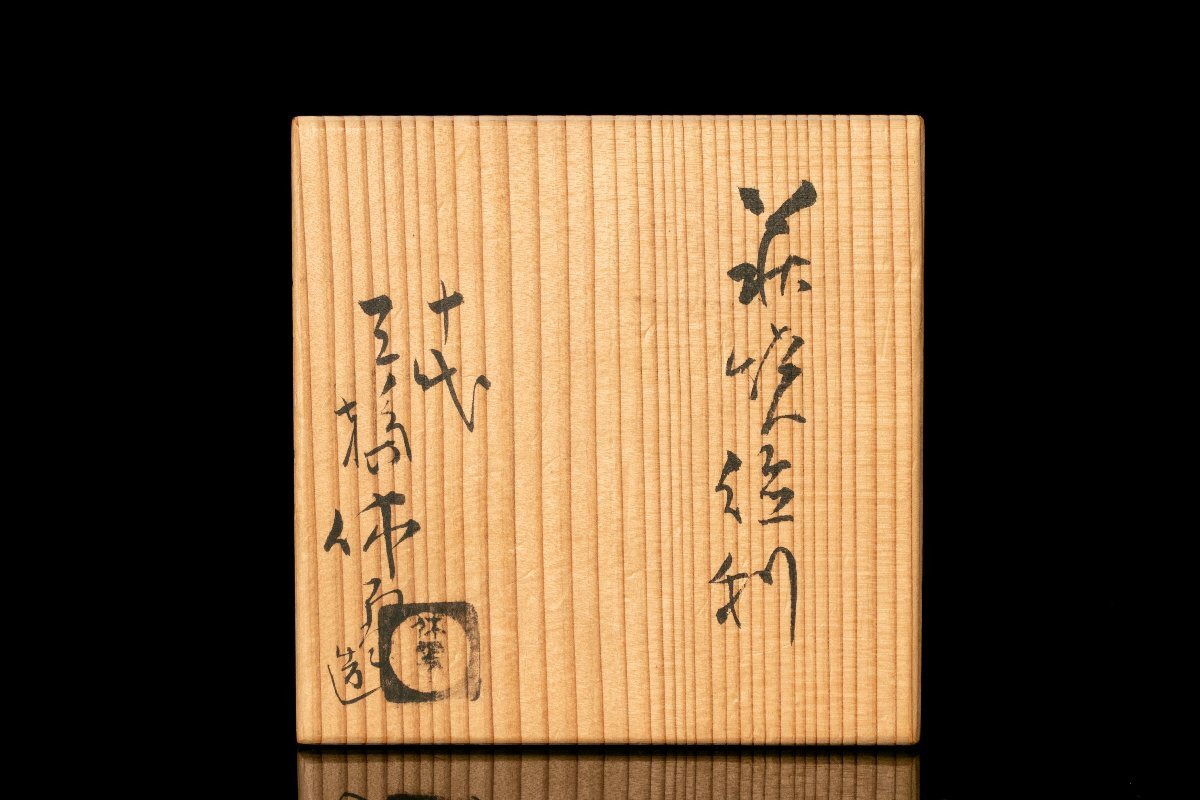 萩焼徳利
十代
三輪休雪造
休雪